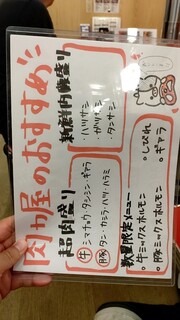 肉力屋のおすすめ
超肉盛り
牛 シマチョウ・タンシン・ギアラ
豚 タン・カシラ・ハツ・ハラミ
新鮮内臓盛り
・ハツサシ
・ガツサシ
・タンサシ
数量限定メニュー
・牛ミックスホルモン
・豚ミックスホルモン
・しびれ
・ギアラ